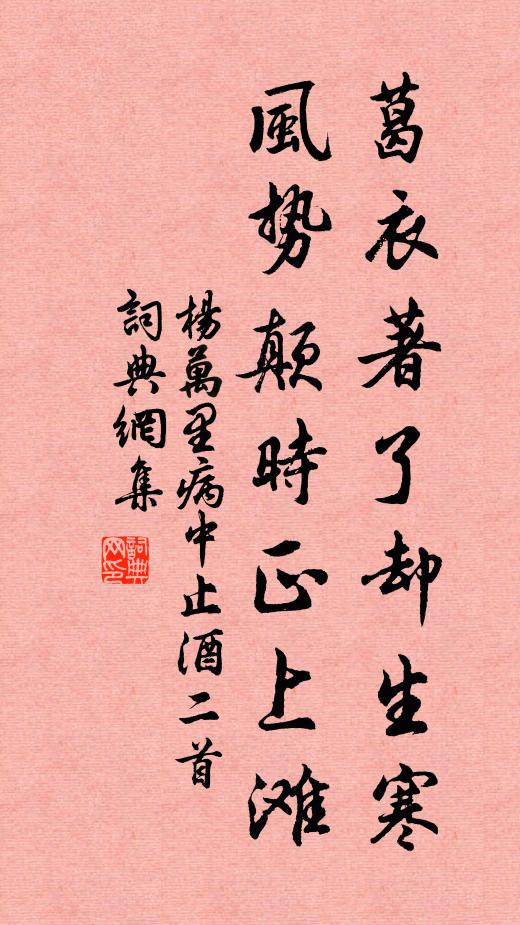 葛衣著了却生寒
風势颠時正上滩
楊萬里病中止酒二首
詞典網集
詞典网印